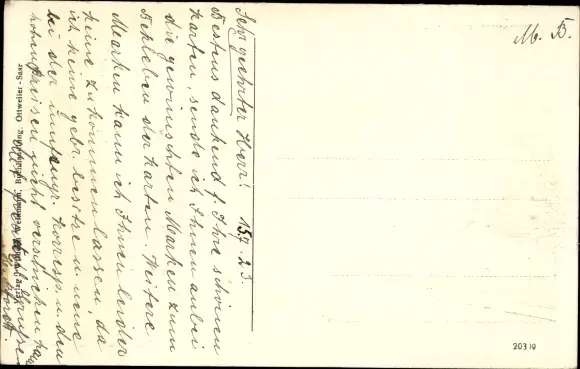 Sehr geehrter Herr! 15.7.23.
Bestens dankend f. Ihre schönen
Karten, sende ich Ihnen anbei
die gewünschten Marken zum
Bekleben der Karten. Weitere
Marken kann ich Ihnen leider
keine zukommen lassen, da
ich keine gebr. besitze u. neue
bei der umfangr. Korresp. u. den
nicht verschicken
Mit
Ottweiler-Saar
M. B.
20319